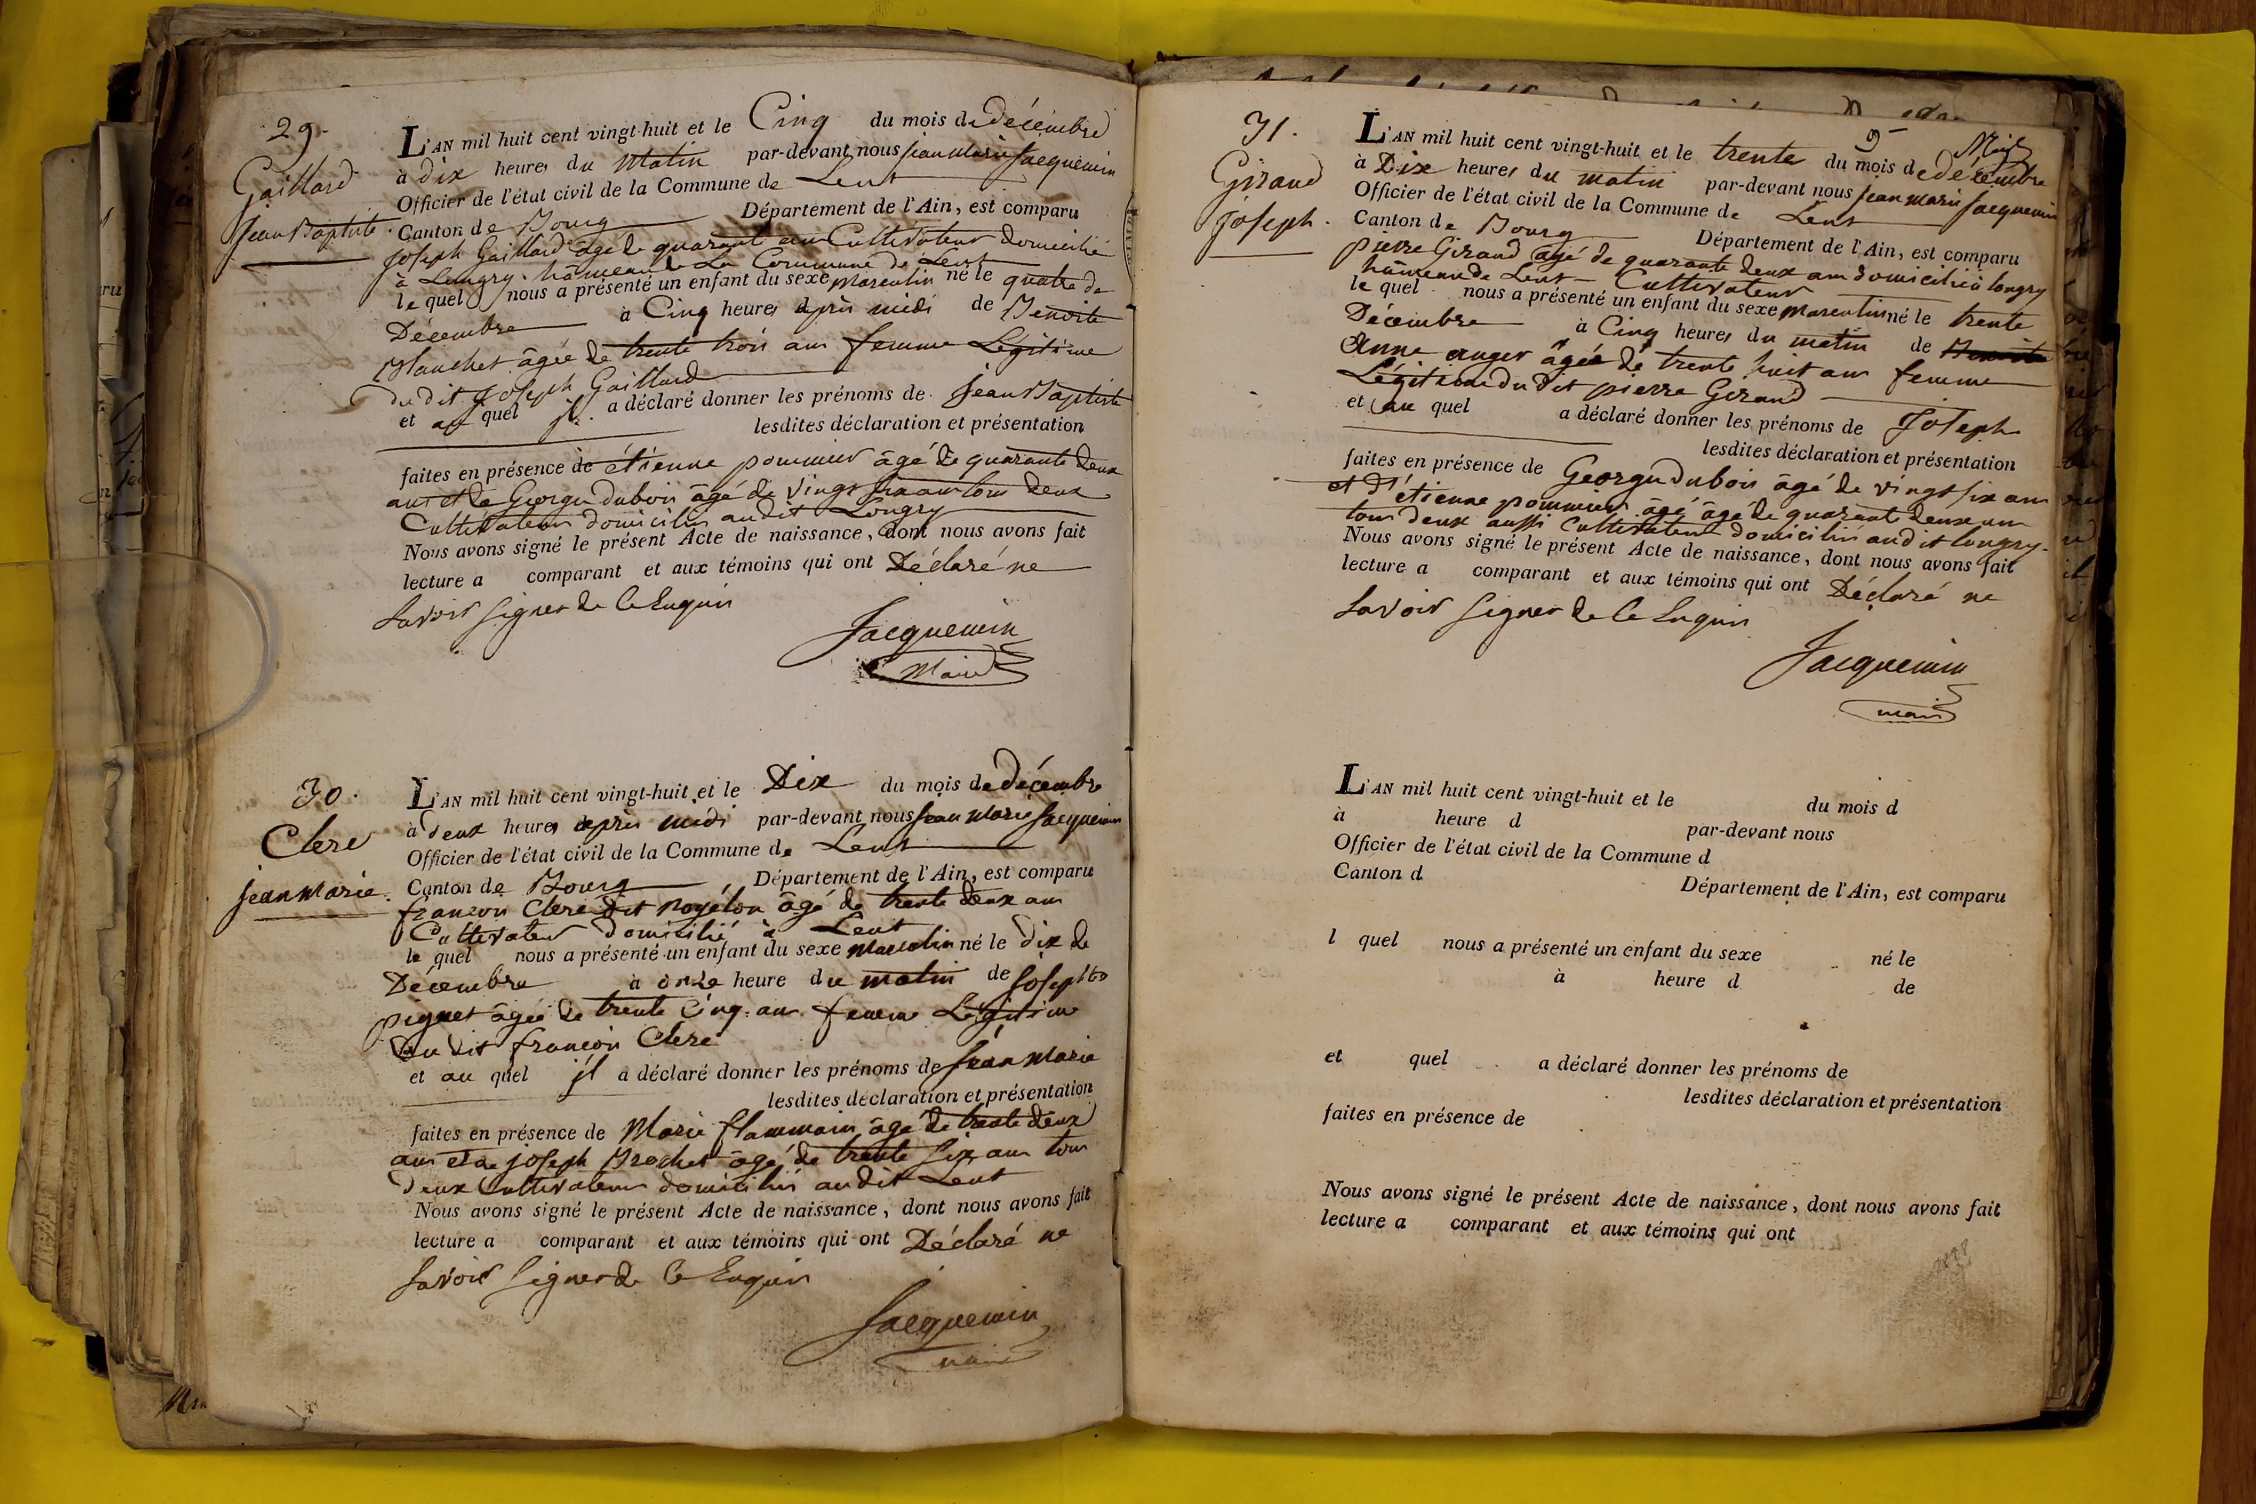 29.
Gaillard
Jean Baptiste.
L'AN mil huit cent vingt-huit et le Cinq du mois de décembre
à dix heures du matin par-devant nous jean marie jacquemin
Officier de l'état civil de la Commune de Lent
Canton de Bourg Département de l'Ain, est comparu
joseph Gaillard âgé de quarante ans Cultivateur domicilié
à Longry hâmeau de La Commune de Lent
le quel nous a présenté un enfant du sexe masculin né le quatre de
Décembre à Cinq heures après midi de Benoite
Blanchet âgée de trente trois ans femme Légitime
du dit joseph Gaillard
et au quel il a déclaré donner les prénoms de jean Baptiste
lesdites déclaration et présentation
faites en présence de étienne pommier âgé de quarante deux
ans et de George dubois âgé de vingt six ans tous deux
Cultivateurs domiciliés au dit Longry
Nous avons signé le présent Acte de naissance, dont nous avons fait
lecture a comparant et aux témoins qui ont Déclaré ne
Savoir Signer de Ce Enquis
Jacquemin
Maire
30.
Clere
jean marie.
L'AN mil huit cent vingt-huit et le Dix du mois de décembre
à deux heures après midi par-devant nous jean marie jacquemin
Officier de l'état civil de la Commune de Lent
Canton de Bourg Département de l'Ain, est comparu
françois Clere dit âgé de trente deux ans
Cultivateur domicilié à Lent
le quel nous a présenté un enfant du sexe masculin né le dix de
Décembre à onze heure du matin de josephte
piguet âgée de trente Cinq ans femme Légitime
Du dit françois Clere
et au quel il a déclaré donner les prénoms de jean marie
lesdites déclaration et présentation
faites en présence de Marie flammain âgé de trente deux
ans et de joseph Brochet âgé de trente Six ans tous
deux Cultivateurs domiciliés au dit Lent
Nous avons signé le présent Acte de naissance, dont nous avons fait
lecture a comparant et aux témoins qui ont Déclaré ne
Savoir Signer de Ce Enquis
Jacquemin
maire
31.
Girand
joseph.
L'AN mil huit cent vingt-huit et le trente du mois de décembre
à Dix heures du matin par-devant nous jean marie jacquemin
Officier de l'état civil de la Commune de Lent
Canton de Bourg Département de l'Ain, est comparu
pierre Girand âgé de quarante deux ans domicilié à longry
hâmeau de Lent Cultivateur
le quel nous a présenté un enfant du sexe masculin né le trente
Décembre à Cinq heures du matin de
Anne auger âgée de trente huit ans femme
Légitime du dit pierre Girand
et au quel a déclaré donner les prénoms de Joseph
lesdites déclaration et présentation
faites en présence de George dubois âgé de vingt six ans
et d'étienne pommier âgé âgé de quarante deux ans
tous deux aussi Cultivateurs domiciliés au dit longry.
Nous avons signé le présent Acte de naissance, dont nous avons fait
lecture a comparant et aux témoins qui ont Déclaré ne
Savoir Signer de Ce Enquis
Jacquemin
maire
L'AN mil huit cent vingt-huit et le du mois d
à heure d par-devant nous
Officier de l'état civil de la Commune d
Canton d Département de l'Ain, est comparu
l quel nous a présenté un enfant du sexe né le
à heure d de
et quel a déclaré donner les prénoms de
lesdites déclaration et présentation
faites en présence de
Nous avons signé le présent Acte de naissance, dont nous avons fait
lecture a comparant et aux témoins qui ont